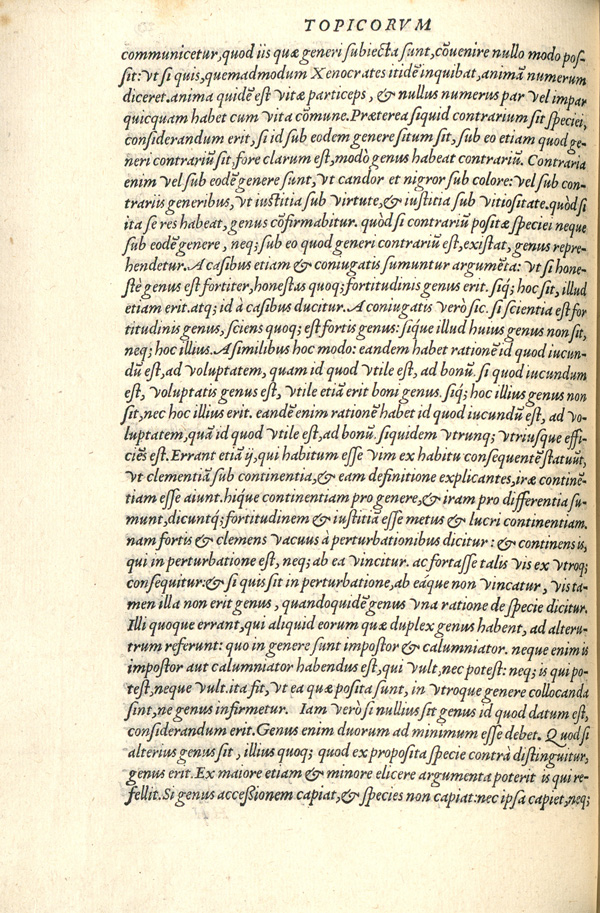 TOPICORVM
communicetur, quod iis quæ generi subiecta sunt, cõuenire nullo modo pos-
sit: vt si quis, quemadmodum Xenocrates itidẽ inquibat, animã numerum
diceret. anima quidẽ est vitæ particeps, & nullus numerus par vel impar
quicquam habet cum vita cõmune. Præterea siquid contrarium sit speciei,
considerandum erit, si id sub eodem genere situm sit, sub eo etiam quod ge-
neri contrariũ sit, fore clarum est, modò genus habeat contrariũ. Contraria
enim vel sub eodẽ genere sunt, vt candor et nigror sub colore: vel sub con-
trariis generibus, vt iustitia sub virtute, & iustitia sub vitiositate. quòd si
ita se res habeat, genus cõfirmabitur. quòd si contrariũ positæ speciei neque
sub eodẽ genere, neq; sub eo quod generi contrariũ est, existat, genus repre-
hendetur. A casibus etiam & coniugatis sumuntur argumẽta: vt si hone-
stè genus est fortiter, honestas quoq; fortitudinis genus erit. siq; hoc sit, illud
etiam erit. atq; id à casibus ducitur. A coniugatis verò sic. si scientia est for
titudinis genus, sciens quoq; est fortis genus: sique illud huius genus non sit,
neq; hoc illius. A similibus hoc modo: eandem habet rationẽ id quod iucun-
dũ est, ad voluptatem, quam id quod vtile est, ad bonũ. si quod iucundum
est, voluptatis genus est, vtile etiã erit boni genus. siq; hoc illius genus non
sit, nec hoc illius erit. eandẽ enim rationẽ habet id quod iucundũ est, ad vo-
luptatem, quã id quod vtile est, ad bonũ. siquidem vtrunq; vtriusque effi-
ciẽs est. Errant etiã ij, qui habitum esse vim ex habitu consequentẽ statuũt,
vt clementiã sub continentia, & eam definitione explicantes, iræ continẽ-
tiam esse aiunt. hique continentiam pro genere, & iram pro differentia su-
munt, dicuntq́; fortitudinem & iustitiã esse metus & lucri continentiam.
nam fortis & clemens vacuus à perturbationibus dicitur: & continens is,
qui in perturbatione est, neq; ab ea vincitur. ac fortasse talis vis ex vtroq;
consequitur: & si quis sit in perturbatione, ab eáque non vincatur, vis ta-
men illa non erit genus, quandoquidẽ genus vna ratione de specie dicitur.
Illi quoque errant, qui aliquid eorum quæ duplex genus habent, ad alteru-
trum referunt: quo in genere sunt impostor & calumniator. neque enim is
impostor aut calumniator habendus est, qui vult, nec potest: neq; is qui po-
test, neque vult. ita fit, vt ea quæ posita sunt, in vtroque genere collocanda
sint, ne genus infirmetur. Iam verò si nullius sit genus id quod datum est,
considerandum erit. Genus enim duorum ad minimum esse debet. Quod si
alterius genus sit, illius quoq; quod ex proposita specie contrà distinguitur,
genus erit. Ex maiore etiam & minore elicere argumenta poterit is qui re-
fellit. Si genus accessionem capiat, & species non capiat: nec ipsa capiet, neq;